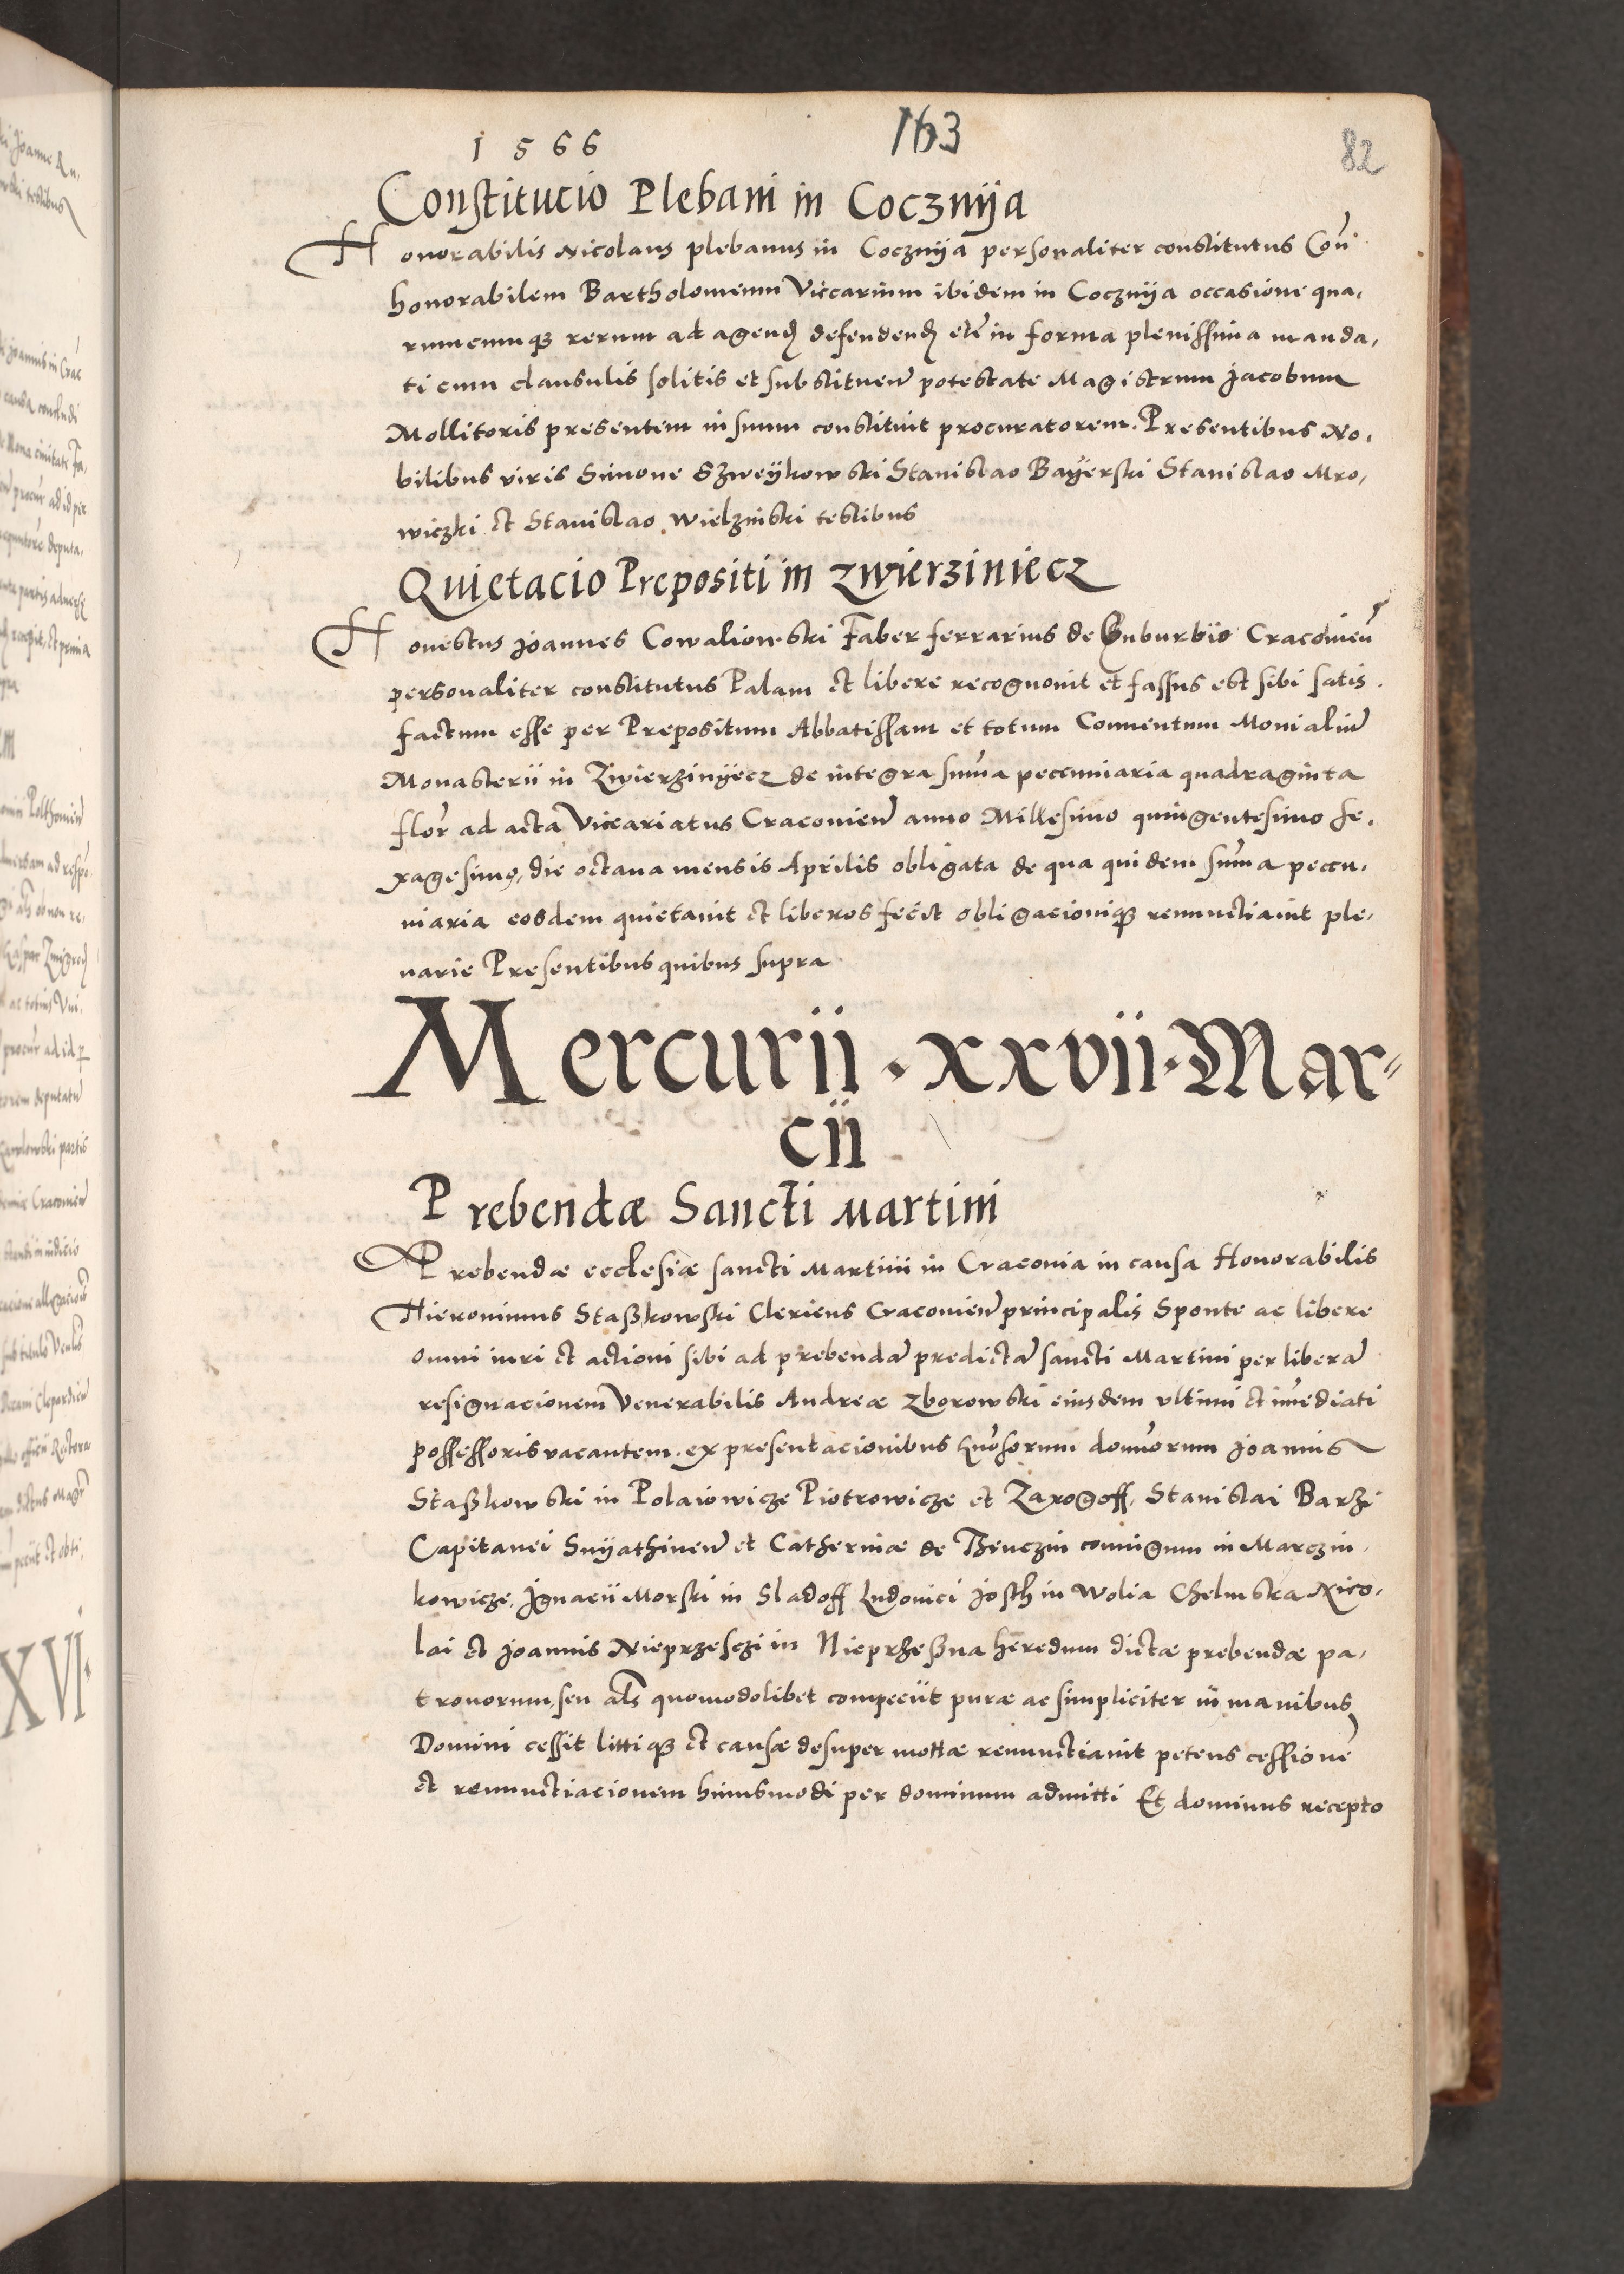 1566
163
82
Constitucio Plebani in Cocznija
Honorabilis Nicolaus plebanus in Cocznija personaliter constitutus Con̄
honorabilem Bartholomeum Viccarium ibidem in Cocznija occasione qua,
rumcumqꝫ rerum ad agend̨ defendend̨ etc̄ in forma plenissima manda,
ti cum clausulis solitis et substituen̄ potestate Magistrum Jacobum
Mollitoris presentem in suum constituit procuratorem. Presentibus No,
bilibus viris Simone Szweÿkowski Stanislao Bayerski Stanislao Mro,
wiczki et Stanislao Wielzinski testibus
Quietacio Prepositi in Zwierziniecz
Honestus Joannes Cowaliowski Faber ferrarius de Suburbio Cracovien̄
personaliter constitutus Palam et libere recognovit et fassus est sibi satis
factum esse per Prepositum Abbatissam et totum Conventum Monialiū
Monasterii in Zwierzinÿecz de integra sum̄a peccuniaria quadraginta
flor̄ ad acta Vicariatus Cracovien̄ anno Millesimo quingentesimo se,
xagesimo, die octava mensis Aprilis obligata de qua quidem sum̄a peccu,
niaria eosdem quietavit et liberos fecit obligacioniqꝫ renunctiavit ple,
narie Presentibus quibus supra
Mercurii · xxvii · Mar=
cii
Prebendæ Sancti Martini
Prebendæ ecclesiæ sancti Martini in Cracovia in causa Honorabilis
Hieronimus Staßkowski Clericus Cracovien̄ principalis Sponte ac libere
omni iuri et actioni sibi ad prebendā predictā sancti Martini per liberā
resignacionem Venerabilis Andreæ Zborowski eiusdem ultimi et im̄ediati
possessoris vacantem. ex presentacionibus Gn̄osorum dom̄orum Joannis
Staßkowski in Polaiowicze Piotrowicze et Zarogoff, Stanislai Barzi
Capitanei Snÿathinen̄ et Catherinæ de Thenczin coniugum in Marczin,
kowicze, Ignacii Morski in Sladoff Ludovici Josth in Wolia Chelmska Nico,
lai et Joannis Nieprzesczi in Nieprzeßna heredum dictæ prebendæ pa,
tronorum, seu al̄s quomodolibet compeciit puræ ac simpliciter in manibus
Domini cessit littiqꝫ et causæ desuper mottæ renunctiavit petens cessionē
et renunctiacionem huiusmodi per dominum admitti Et dominus recepto